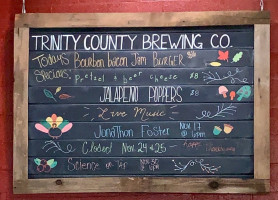 TRINITY COUNTY BREWING CO.
Todays Bourbon bacon Jam BURGER
Specials: pretzel & beer cheese $8
JALAPENO POPPERS
Live Music
Jonathon Foster Nov 17
@ 6pm
Closed Nov 24 & 25
Science on Tap Nov 30
@ 6pm